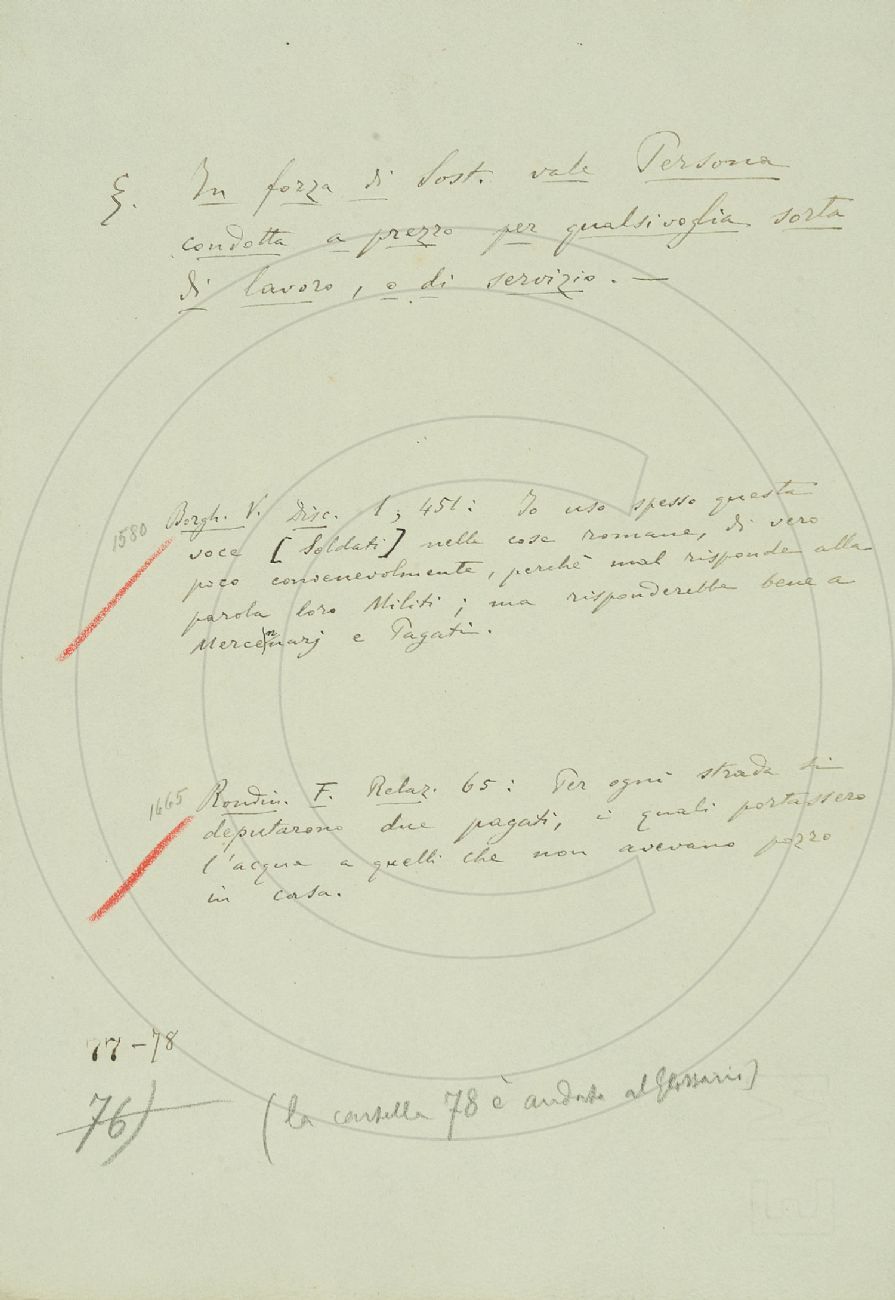 §. In forza di Sost. vale Persona
condotta a prezzo per qualsivoglia sorta
di lavoro, o di servizio. —
1580 Borgh. V. Disc. 1, 451: Io uso spesso questa
voce [Soldati] nelle cose romane, di vero
poco convenevolmente, perchè mal risponde alla
parola loro Militi; ma risponderebbe bene a
Mercennarj e Pagati.
1665 Rondin. F. Relaz. 65: Per ogni strada si
deputarono due pagati, i quali portassero
l'acqua a quelli che non avevano pozzo
in casa.
77-78
76) (la cartella 78 è andata al Glossario)